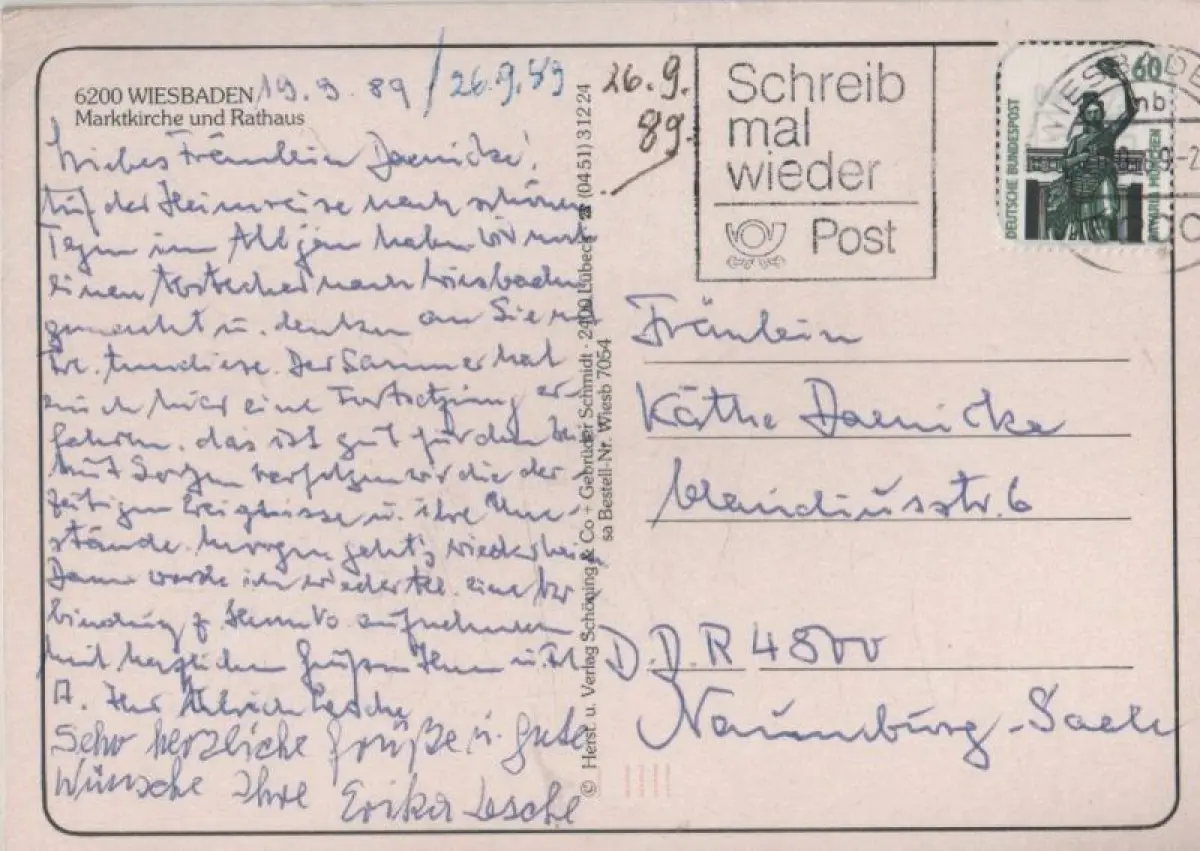 6200 WIESBADEN 19.9.89 / 26.9.89
Marktkirche und Rathaus
Liebes Fräulein Daenicke!
Auf der Heimreise nach schönen
Tagen im Allgäu haben wir noch
einen Abstecher nach Wiesbaden
gemacht u. denken an Sie
Der Sommer hat
auch hier eine Fortsetzung er-
fahren. das ist gut für den
Mit Sorgen verfolgen wir die der-
zeitigen Ereignisse u. ihre Um-
stände. Morgen geht's wieder heim
Dann werde ich wieder eine Ver-
bindung z. aufnehmen
Mit herzlichen Grüßen Ihnen u.
A. Ihr Ulrich Lesche
Sehr herzliche Grüße u. gute
Wünsche Ihre Erika Lesche
© Herst. u. Verlag Schöning & Co + Gebrüder Schmidt · 2400 Lübeck ☎ (0451) 31224
sa Bestell-Nr. Wiesb 7054
26.9.
89.
Schreib
mal
wieder
Post
WIESBADEN
mb
DEUTSCHE BUNDESPOST
60
BAVARIA MÜNCHEN
Fräulein
Käthe Daenicke
Claudiusstr. 6
D.D.R 4800
Naumburg-Saale